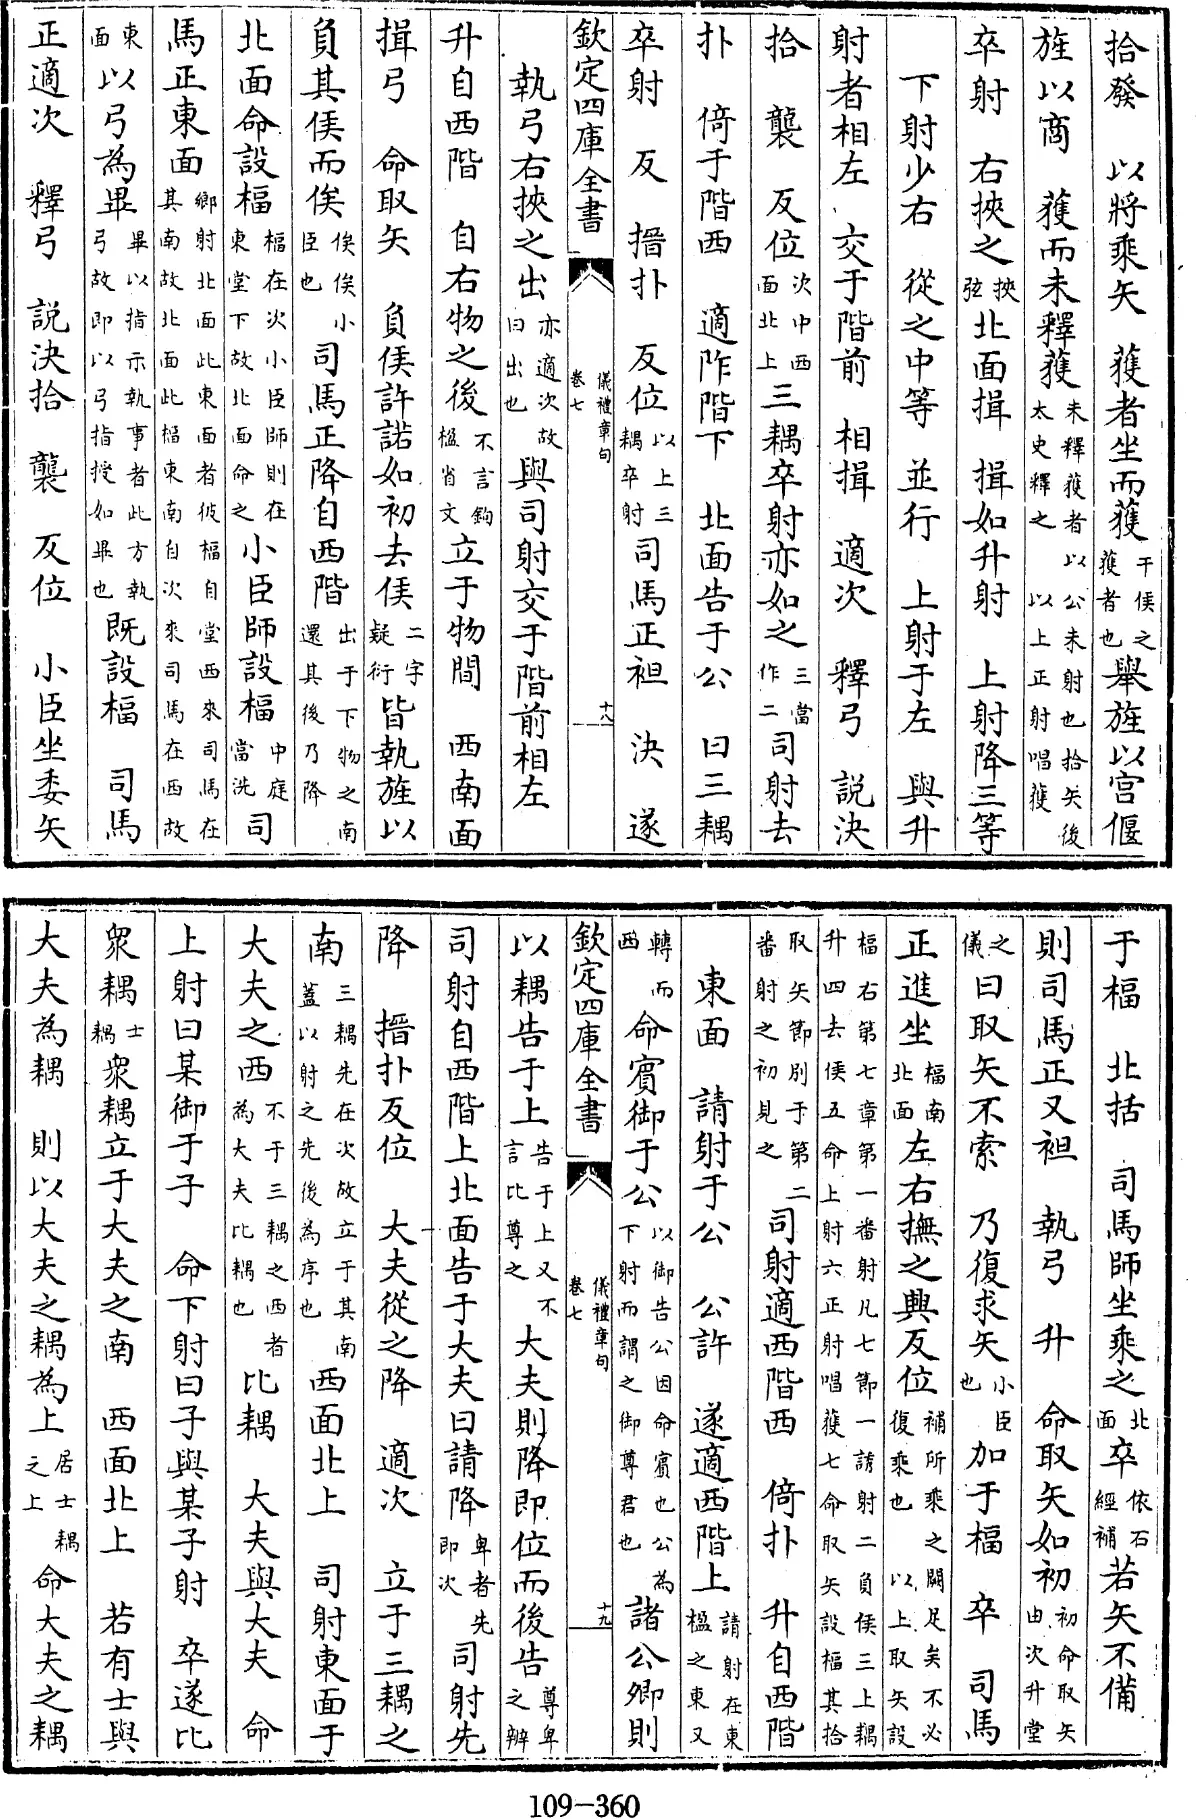 拾發　以將乘矢　獲者坐而獲干侯之獲者也舉旌以宮偃
旌以商　獲而未釋獲未釋獲者以公未射也拾矢後太史釋之　以上正射唱獲
卒射　右挾之挾弦北面揖　揖如升射　上射降三等
下射少右　從之中等　並行　上射于左　與升
射者相左　交于階前　相揖　適次　釋弓　說決
拾　襲　反位次中西面北上三耦卒射亦如之三當作二司射去
扑　倚于階西　適阼階下　北面告于公　曰三耦
卒射　反　搢扑　反位以上三耦卒射司馬正袒　決　遂
欽定四庫全書　儀禮章句卷七　十八
執弓右挾之出亦適次故曰出也與司射交于階前相左
升自西階　自右物之後不言鉤楹省文立于物間　西南面
揖弓　命取矢　負侯許諾如初去侯二字疑衍皆執旌以
負其侯而俟俟俟小臣也　司馬正降自西階出于下物之南還其後乃降
北面命設楅楅在次小臣師則在東堂下故北面命之小臣師設楅中庭當洗司
馬正東面鄉射北面此東面者彼楅自堂西來司馬在其南故北面此楅東南自次來司馬在西故
東面以弓為畢畢以指示執事者此方執弓故即以弓指授如畢也既設楅　司馬
正適次　釋弓　說決拾　襲　反位　小臣坐委矢
于楅　北括　司馬師坐乘之北面卒依石經補若矢不備
則司馬正又袒　執弓　升　命取矢如初初命取矢由次升堂
之儀曰取矢不索　乃復求矢小臣也加于楅　卒　司馬
正進坐楅南北面左右撫之興反位補所乘之闕足矣不必復乘也　以上取矢設
楅右第七章第一番射凡七節一請射二負侯三上耦升四去侯五命上射六正射唱獲七命取矢設楅其拾
取矢節別于第二番射之初見之　司射適西階西　倚扑　升自西階
東面　請射于公　公許　遂適西階上請射在東楹之東又
轉而西命賓御于公以御告公因命賓也公為下射而謂之御尊君也　諸公卿則
欽定四庫全書　儀禮章句卷七　十九
以耦告于上告于上又不言比尊之　大夫則降即位而後告尊卑之辨
司射自西階上北面告于大夫曰請降卑者先即次　司射先
降　搢扑反位　大夫從之降　適次　立于三耦之
南三耦先在次故立于其南蓋以射之先後為序也　西面北上　司射東面于
大夫之西不于三耦之西者為大夫比耦也　比耦　大夫與大夫　命
上射曰某御于子　命下射曰子與某子射　卒遂比
眾耦士耦眾耦立于大夫之南　西面北上　若有士與
大夫為耦　則以大夫之耦為上居士耦之上　命大夫之耦
109-360